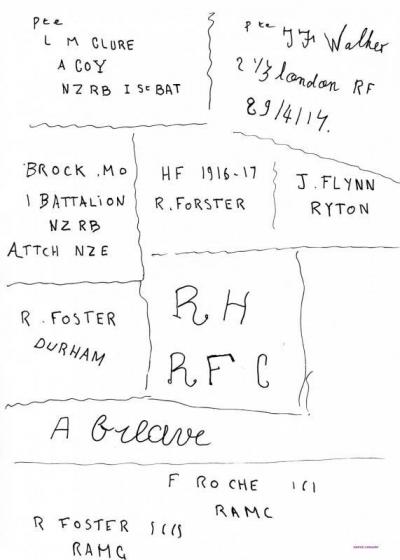 Pte
L M CLURE
A COY
NZRB I St BAT
Pte J F Walker
2 1/3 london RF
29/4/17.
BROCK .MO
I BATTALION
NZ RB
ATTCH NZE
HF 1916-17
R.FORSTER
J.FLYNN
RYTON
R.FOSTER
DURHAM
RH
RFC
A Greave
F ROCHE
RAMC
R FOSTER
RAMC